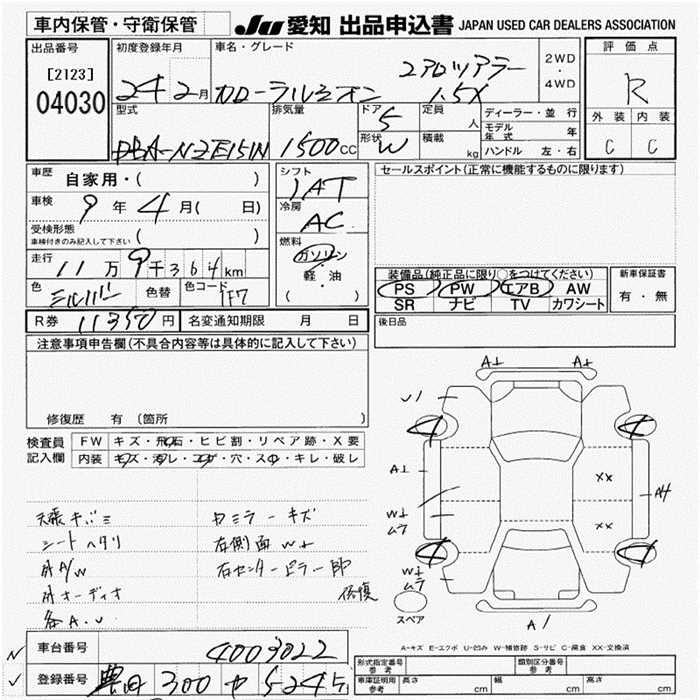 車内保管・守衛保管 JU 愛知 出品申込書 JAPAN USED CAR DEALERS ASSOCIATION
出品番号 初度登録年月 車名・グレード 評価点
[2123] 04030 24 2月 カローラルミオン エアロツアラー 1.5X 2WD・4WD R
型式 排気量 ドア 5 定員 人 ディーラー・並行 外装 内装
モデル年式 年
DBA-NZE151N 1500cc 形状 W 積載 kg ハンドル 左・右 C C
車歴 自家用・( ) シフト IAT セールスポイント(正常に機能するものに限ります)
車検 9年4月( 日) 冷房 AC
受検形態 車検付きのみ記入して下さい ( )
燃料 ガソリン・軽・油 ( ・ )
走行 11万9千364km 装備品(純正品に限り○をつけてください) 新車保証書
色 シルバー 色替 色コード 1F7 PS PW エアB AW 有・無
SR ナビ TV カワシート
R券 11350円 名変通知期限 月 日 後日品
注意事項申告欄(不具合内容等は具体的に記入して下さい)
修復歴 有 (箇所 )
検査員記入欄 FW キズ・飛石・ヒビ割・リペア跡・X要
内装 キズ・汚レ・コゲ・穴・スレ・キレ・破レ
天張キバミ 内ミラーキズ
シートヘタリ 右側面W±
社A/W 右センターピラー
社オーディオ 修復
各A.U
A± A±
U1 4 4
A± XX A4
W± ムラ XX
4 4
W± ムラ
スペア A1
A-キズ E-エクボ U-凹み W-補修跡 S-サビ C-腐食 XX-交換済
車台番号 4003022
登録番号 豊田 300
形式指定番号 参考 類別区分番号 参考
車庫証明用 参考 長さ cm 幅 cm 高さ cm